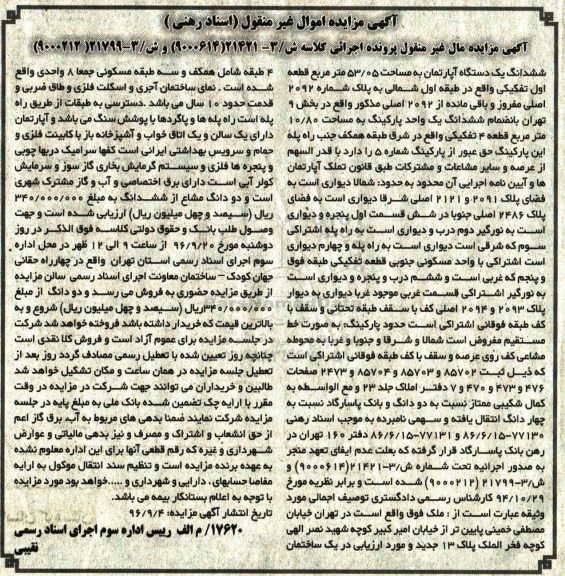 آگهی مزایده اموال غیر منقول (اسناد رهنی )
آگهی مزایده مال غیر منقول پرونده اجرائی کلاسه ش/۳- ۲۱۴۲۱(۹۰۰۰۶۱۴) و ش/۳-۲۱۷۹۹( ۹۰۰۰۲۱۲)
ششدانگ یک دستگاه آپارتمان به مساحت ۵۳/۰۵ متر مربع قطعه
اول تفکیکی واقع در طبقه اول شمالی به پلاک شماره ۲۰۹۲
اصلی مفروز و باقی مانده از ۲۰۹۲ اصلی مذکور واقع در بخش ۹
تهران بانضمام ششدانگ یک واحد پارکینگ به مساحت ۱۰/۸۰
متر مربع قطعه ۴ تفکیکی واقع در شرق طبقه همکف جنب راه پله
این پارکینگ حق عبور از پارکینگ شماره ۵ را دارد با قدر السهم
از عرصه و سایر مشاعات و مشترکات طبق قانون تملک آپارتمان
ها و آیین نامه اجرایی آن محدود به حدود: شمالا دیواری است به
فضای پلاک ۲۰۹۱ و ۲۱۲۱ اصلی شرقا دیواری است به فضای
پلاک ۲۴۸۶ اصلی جنوبا در شش قسمت اول پنجره و دیواری
است به نورگیر دوم درب و دیواری است به راه پله اشتراکی
سوم که شرقی است دیواری است به راه پله و چهارم دیواری
است اشتراکی با واحد مسکونی جنوبی قطعه تفکیکی طبقه فوق
و پنجم که غربی است و ششم درب و پنجره و دیواری است
به نورگیر اشتراکی قسمت غربی موجود غربا دیواری به دیوار
پلاک ۲۰۹۳ و ۲۰۹۴ اصلی کف با سقف طبقه تحتانی و سقف با
کف طبقه فوقانی اشتراکی است حدود پارکینگ: به صورت خط
مستقیم مفروض است شمالا و شرقا و جنوبا و غربا به محوطه
مشاعی کف روی عرصه و سقف با کف طبقه فوقانی اشتراکی است
که ذیل ثبت ۸۵۷۰۲ و ۸۵۷۰۳ و ۸۵۷۰۴ و ۲۴۷۳ صفحات
۴۷۶ و ۴۷۳ و ۴۷۰ و ۷ دفتر: املاک جلد ۲۳ و مع الواسطه به
کمال شکیبی ممتاز نسبت به دو دانگ و بانک پاسارگاد نسبت به
چهار دانگ انتقال یافته و سهمی نامبرده به موجب اسناد رهنی
۷۷۱۳۰-۸۶/۶/۱۵ و ۷۷۱۳۱-۸۶/۶/۱۵ دفتر ۱۶۰ تهران در
رهن بانک پاسارگاد قرار گرفته که بعلت عدم ایفای تعهد منجر
به صدور اجرائیه تحت شماره ش/۳-۲۱۴۲۱(۹۰۰۰۶۱۴) و
ش/۳-۲۱۷۹۹ (۹۰۰۰۲۱۲) شده است و برابر نظریه مورخ
۹۴/۱۰/۲۹ کارشناس رسمی دادگستری توصیف اجمالی مورد
وثیقه عبارت است از : ملک فوق واقع است در تهران خیابان
مصطفی خمینی پایین تر از خیابان امیر کبیر کوچه شهید نصر الهی
کوچه فخر الملک پلاک ۱۳ جدید و مورد ارزیابی در یک ساختمان
۴ طبقه شامل همکف و سه طبقه مسکونی جمعا ۸ واحدی واقع
شده است . نمای ساختمان آجری و اسکلت فلزی و طاق ضربی و
قدمت حدود ۱۰ سال می باشد .دسترسی به طبقات از طریق راه
پله است راه پله ها و پاگردها با پوشش سنگ می باشد و آپارتمان
دارای یک سالن و یک اتاق خواب و آشپزخانه باز با کابینت فلزی و
حمام و سرویس بهداشتی ایرانی است کفها سرامیک دربها چوبی
و پنجره ها فلزی و سیستم گرمایش بخاری گاز سوز و سرمایش
کولر آبی است دارای برق اختصاصی و آب و گاز مشترک شهری
است و دو دانگ مشاع از ششدانگ به مبلغ ۳۴۰/۰۰۰/۰۰۰
ریال (سیصد و چهل میلیون ریال) ارزیابی شده است و جهت
وصول طلب بانک و حقوق دولتی کلاسه فوق الذکر در روز
دوشنبه مورخ ۹۶/۹/۲۰ از ساعت ۹ الی ۱۲ ظهر در محل اداره
سوم اجرای اسناد رسمی استان تهران واقع در چهارراه حقانی
جهان کودک – ساختمان معاونت اجرای اسناد رسمی سالن مزایده
از طریق مزایده حضوری به فروش می رسد و دو دانگ از مبلغ
۳۴۰/۰۰۰/۰۰۰ریال (سیصد و چهل میلیون ریال) شروع و به
بالاترین قیمت که خریدار داشته باشد فروخته خواهد شد شرکت
در جلسه مزایده برای عموم آزاد است و فروش کلا نقدی است
چنانچه روز تعیین شده با تعطیل رسمی مصادف گردد روز بعد از
تعطیل جلسه مزایده در همان ساعت و مکان تشکیل خواهد شد
طالبین و خریداران می توانند جهت شرکت در مزایده در وقت
مقرر با ارایه چک تضمین شده بانک ملی به مبلغ پایه در جلسه
مزایده شرکت نمایند ضمنا بدهی های مربوط به آب، برق گاز اعم
از حق انشعاب و اشتراک و مصرف و نیز بدهی مالیاتی و عوارض
شهرداری و غیره که رقم قطعی آنها برای این اداره معلوم نشده
به عهده برنده مزایده است و تنظیم سند انتقال موکول به ارایه
مفاصا حسابهای ، دارایی و شهرداری و .....خواهد بود مورد مزایده
با توجه به اعلام بستانکار بیمه می باشد.
تاریخ انتشار آگهی مزایده: ۹۶/۹/۴
۱۷۶۲۰/ م الف رییس اداره سوم اجرای اسناد رسمی
نقیبی